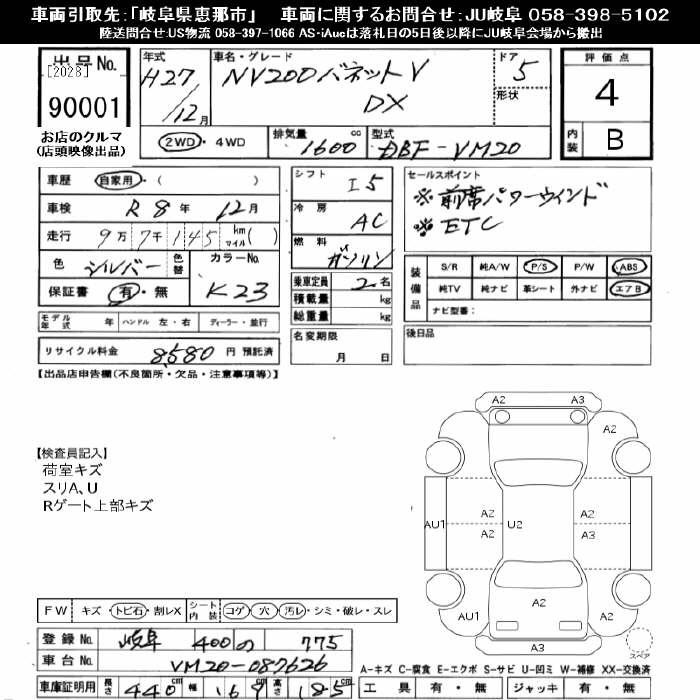 車両引取先:「岐阜県恵那市」　車両に関するお問合せ:JU岐阜 058-398-5102
陸送問合せ:US物流 058-397-1066 AS-iAucは落札日の5日後以降にJU岐阜会場から搬出
出品No.
[2028]
90001
お店のクルマ
(店頭映像出品)
年式 H27/12月
車名・グレード NV200バネットV DX
ドア 5
形状
2WD・4WD
排気量 1600 cc
型式 DBF-VM20
評価点 4
内装 B
車歴 自家用・( )
車検 R8年 12月
走行 9万7千145 km マイル( )
色 シルバー 色替 カラーNo. K23
保証書 有・無
シフト I5
冷房 AC
燃料 ガソリン
乗車定員 2名
積載量 kg
総重量 kg
セールスポイント
※前席パワーウインド
※ETC
装備品 S/R 純A/W P/S P/W ABS
純TV 純ナビ 革シート 外ナビ エアB
ナビ型番:
モデル年式 年 ハンドル 左・右 ディーラー・並行
リサイクル料金 8580 円 預託済
名変期限 月 日
後日品
【出品店申告欄(不良箇所・欠品・注意事項等)】
【検査員記入】
荷室キズ
スリA、U
Rゲート上部キズ
A2 A3
A2 A2
A2 A2
AU1 U2
A2 A3
A2
AU1 A2
A3
スペア
FW キズ・トビ石・割レX シート内装 コゲ・穴・汚レ・シミ・破レ・スレ
登録No. 岐阜 400 の 775
車台No. VM20-087626
車庫証明用 長さ 440cm 幅 169cm 高さ 185cm
A-キズ C-腐食 E-エクボ S-サビ U-凹ミ W-補修 XX-交換済
工具 有・無 ジャッキ 有・無